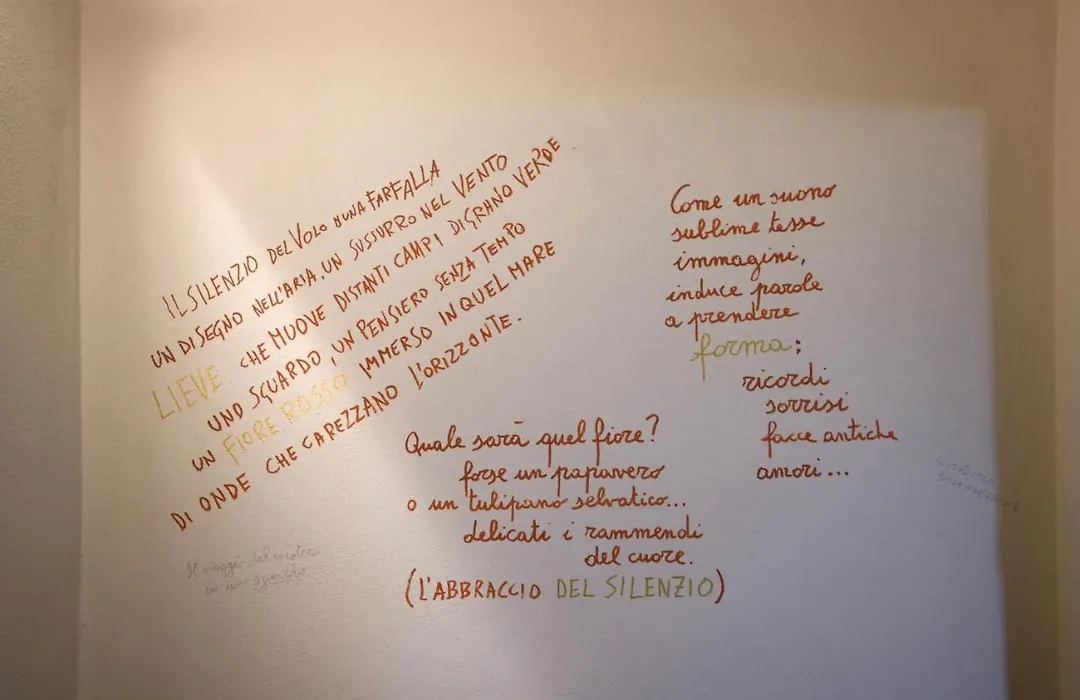 IL SILENZIO DEL VOLO DI UNA FARFALLA
UN DISEGNO NELL'ARIA, UN SUSSURRO NEL VENTO
LIEVE CHE MUOVE DISTANTI CAMPI DI GRANO VERDE
UNO SGUARDO, UN PENSIERO SENZA TEMPO
UN FIORE ROSSO IMMERSO IN QUEL MARE
DI ONDE CHE CAREZZANO L'ORIZZONTE.
Come un suono
sublime tesse
immagini,
induce parole
a prendere
forma:
ricordi
sorrisi
facce antiche
amori...
Quale sarà quel fiore?
forse un papavero
o un tulipano selvatico...
delicati i rammendi
del cuore.
(L'ABBRACCIO DEL SILENZIO)